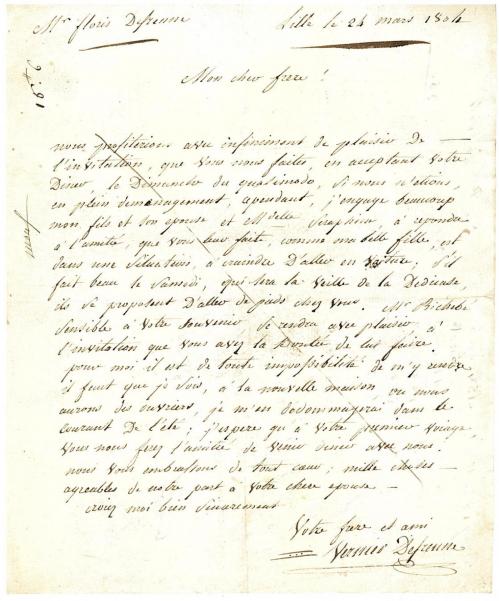 Mr floris Defrenne Lille le 24 mars 1804
Mon cher frere !
nous profiterions avec infiniment de plaisir de
l'invitation, que vous nous faites, en acceptant votre
Diner, le Dimanche du quasimodo, si nous n'etions,
en plein demenagement, cependant, j'engage beaucoup
mon fils et son epouse et Mdelle Seraphine, à repondre
à l'amitié, que vous leur faite, comme ma belle fille, est
dans une Situation, à craindre D'aller en voiture, s'il
fait beau le Samedi, qui sera la veille de la Dedicase,
ils se proposent D'aller de pieds chez vous. Mr
Sensible à votre Souvenir, se rendra avec plaisir, à
l'invitation que vous avez la Bonté de lui faire.
pour moi il est de toute impossibilité de m'y rendre
il faut que je sois, à la nouvelle maison, ou nous
aurons des ouvriers, je m'en dedommagerai dans le
courant de l'eté ; j'espere qu'à votre premier voiage,
vous nous ferez l'amitié de venir diner avec nous.
nous vous embrassons de tout coeur, mille choses
agreables de notre part à votre chere epouse
croiez moi bien sincerement
Votre frere et ami
Vernier Defrenne